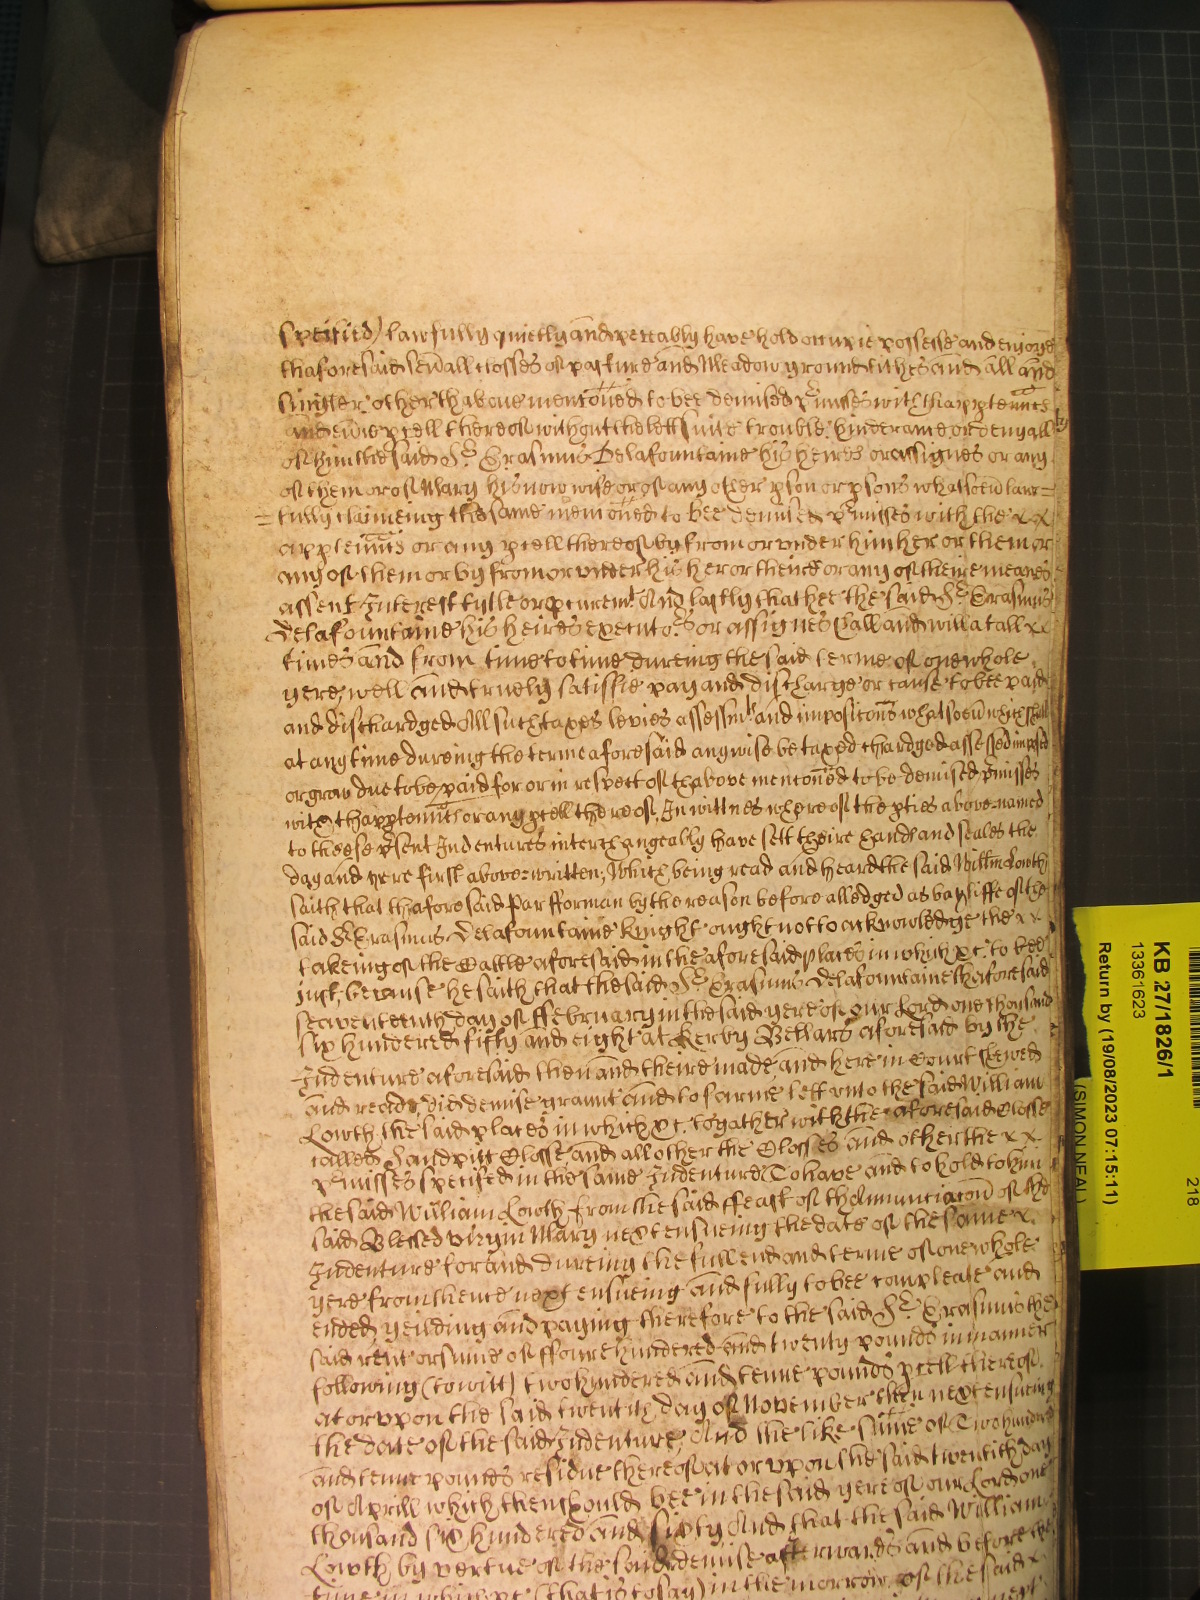 specified) lawfully quietly and peceably have hold occupie possesse and enioye
thaforesaid sev̄all closses of pasture and Meadow ground tithes and all and
singler other thabove menc̄oned to bee demised p̄misses with thapptennc̄es
and ev̄ie p̱cell thereof without the lett suite trouble hinderance or denyall
of him the said Sr. Erasmus Delafountaine his heires or assignes or any
of them or of Mary his now wife or of any other p̱son or p̱sons whatsoev̄ law=
=fully claimeing the same menc̄oned to bee demised p̄misses with the x x
apptennc̄es or any p̱cell thereof by from or under him her or them or
any of them or by from or under his her or theire or any of theire meanes
assent Interest tytle or p̱curemt. And lastly that hee the said Sr. Erasmus
Delafountaine his heires executors. or assignes shall and will at all x x
times and from time to time dureing the said terme of one whole
yere, well and truely satisfie pay and discharge or cause to bee paid
and dischardged All such taxes levies assessmts. and imposic̄ons whatsoev̄ which shall
at any time dureing the terme aforesaid anywise be taxed chardged assessed imposed
or grow due to be paid for or in respect of thabove menc̄oned to be demised p̄misses
with thapptennc̄es or any p̱cell thereof. In wittnes whereof the p̱ties above-named
to theese p̄sent Indentures interchangeably have sett theire hands and seales the
day and yere first above-written; Which being read and heard the said Willm̄ Lowth
saith that thaforesaid Parr fforman by the reason before alledged as bayliffe of the
said Sr. Erasmus Delafountaine Knight ought not to acknowledge the x x
takeing of the Cattle aforesaid in the aforesaid places in which &c. to bee
just, because he saith that the said Sr. Erasmus Delafountaine thaforesaid
seaventeenth day of ffebruary in the said yere of our Lord one thousand
six hundered fifty and eight at Kerby Bellars aforesaid by the
Indenture aforesaid then and theire made, and here in Court shewed
and reade, did demise graunt and to farme lett unto the said William
Lowth the said places in which &c. togather with the aforesaid Closse
called Sandpitt Closse and all other the Closses and other the x x
p̄misses specifed in the same Indenture To have and to hold to him
the said William Lowth from the said ffeast of thAnnunciac̄on of the
said Blessed virgin Mary next ensueing the date of the same x
Indenture for and dureing the full end and terme of one whole
yere from thence next ensueing and fully to bee compleate and
ended, yeilding and paying therefore to the said Sr. Erasmus the
said rent or sume of ffoure hundered and twenty pounds in manner
following (to witt) two hundered and tenne pounds p̱cell thereof
at or upon the said twentith day of November then next ensueing
the date of the said Indenture, And the like sume of Two hundered
and tenne pounds residue thereof at or upon the said twentith day
of Aprill which then should bee in the said yere of our Lord one
thousand six hundered and sixty And that the said William
Lowth by vertue of the said demise afterwards and before the
time in which &c (that is to say) in the morrow of the said x
KB 27/1826/1
13361623
Return by (19/08/2023 07:15:11)
(SIMON NEAL)
218